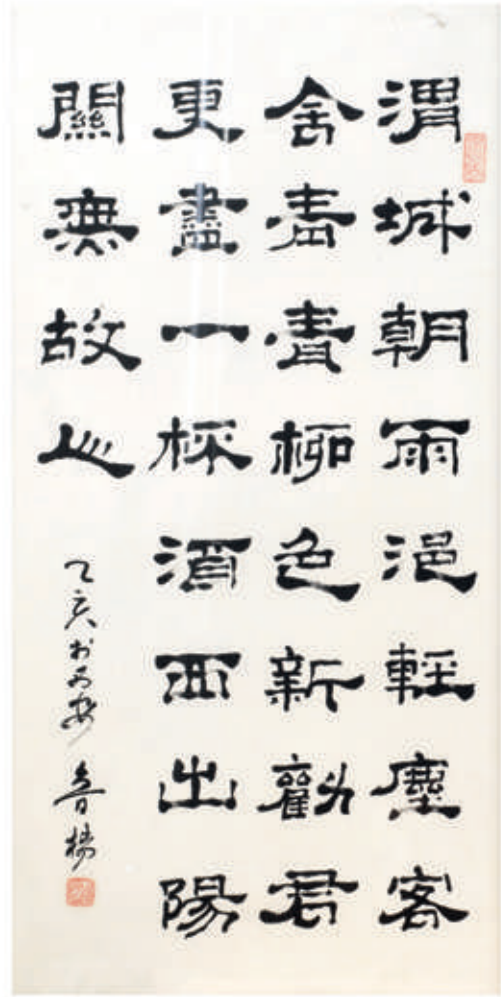 渭城朝雨浥輕塵客
舍青青柳色新勸君
更盡一杯酒西出陽
關無故人
乙亥於西安 魯楊